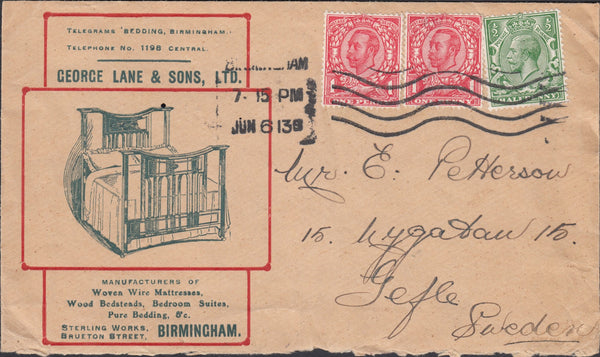 TELEGRAMS 'BEDDING, BIRMINGHAM.'
TELEPHONE No. 1198 CENTRAL.
GEORGE LANE & SONS, LTD.
MANUFACTURERS OF
Woven Wire Mattresses,
Wood Bedsteads, Bedroom Suites,
Pure Bedding, &c.
STERLING WORKS,
BRUETON STREET, BIRMINGHAM.
BIRMINGHAM
7-15 PM
JUN 6 13
ONE PENNY
ONE PENNY
HALF PENNY
Mr. E. Petterson
15. Nygatan 15.
Gefle
Sweden